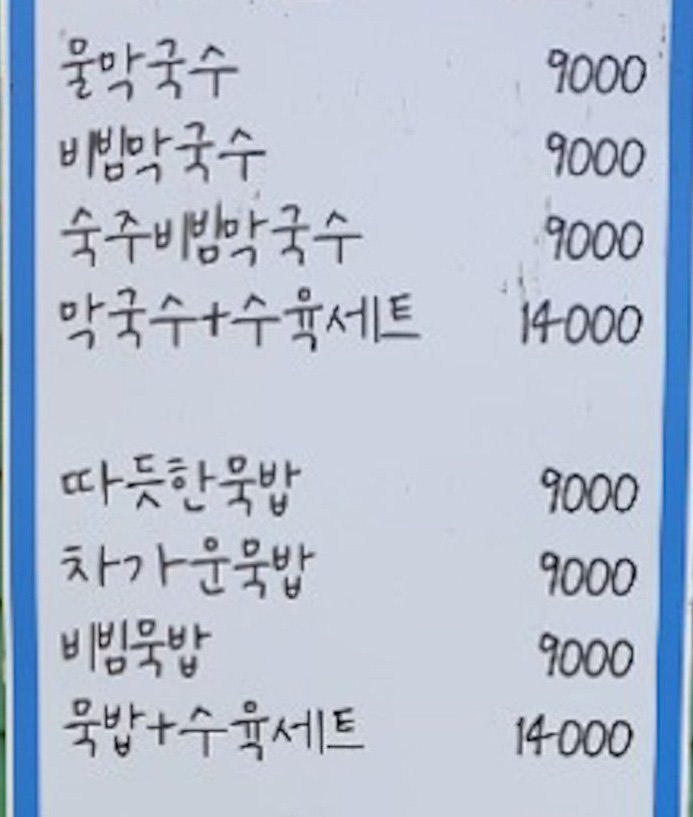 물막국수 9000
비빔막국수 9000
숙주비빔막국수 9000
막국수+수육세트 14000
따듯한묵밥 9000
차가운묵밥 9000
비빔묵밥 9000
묵밥+수육세트 14000